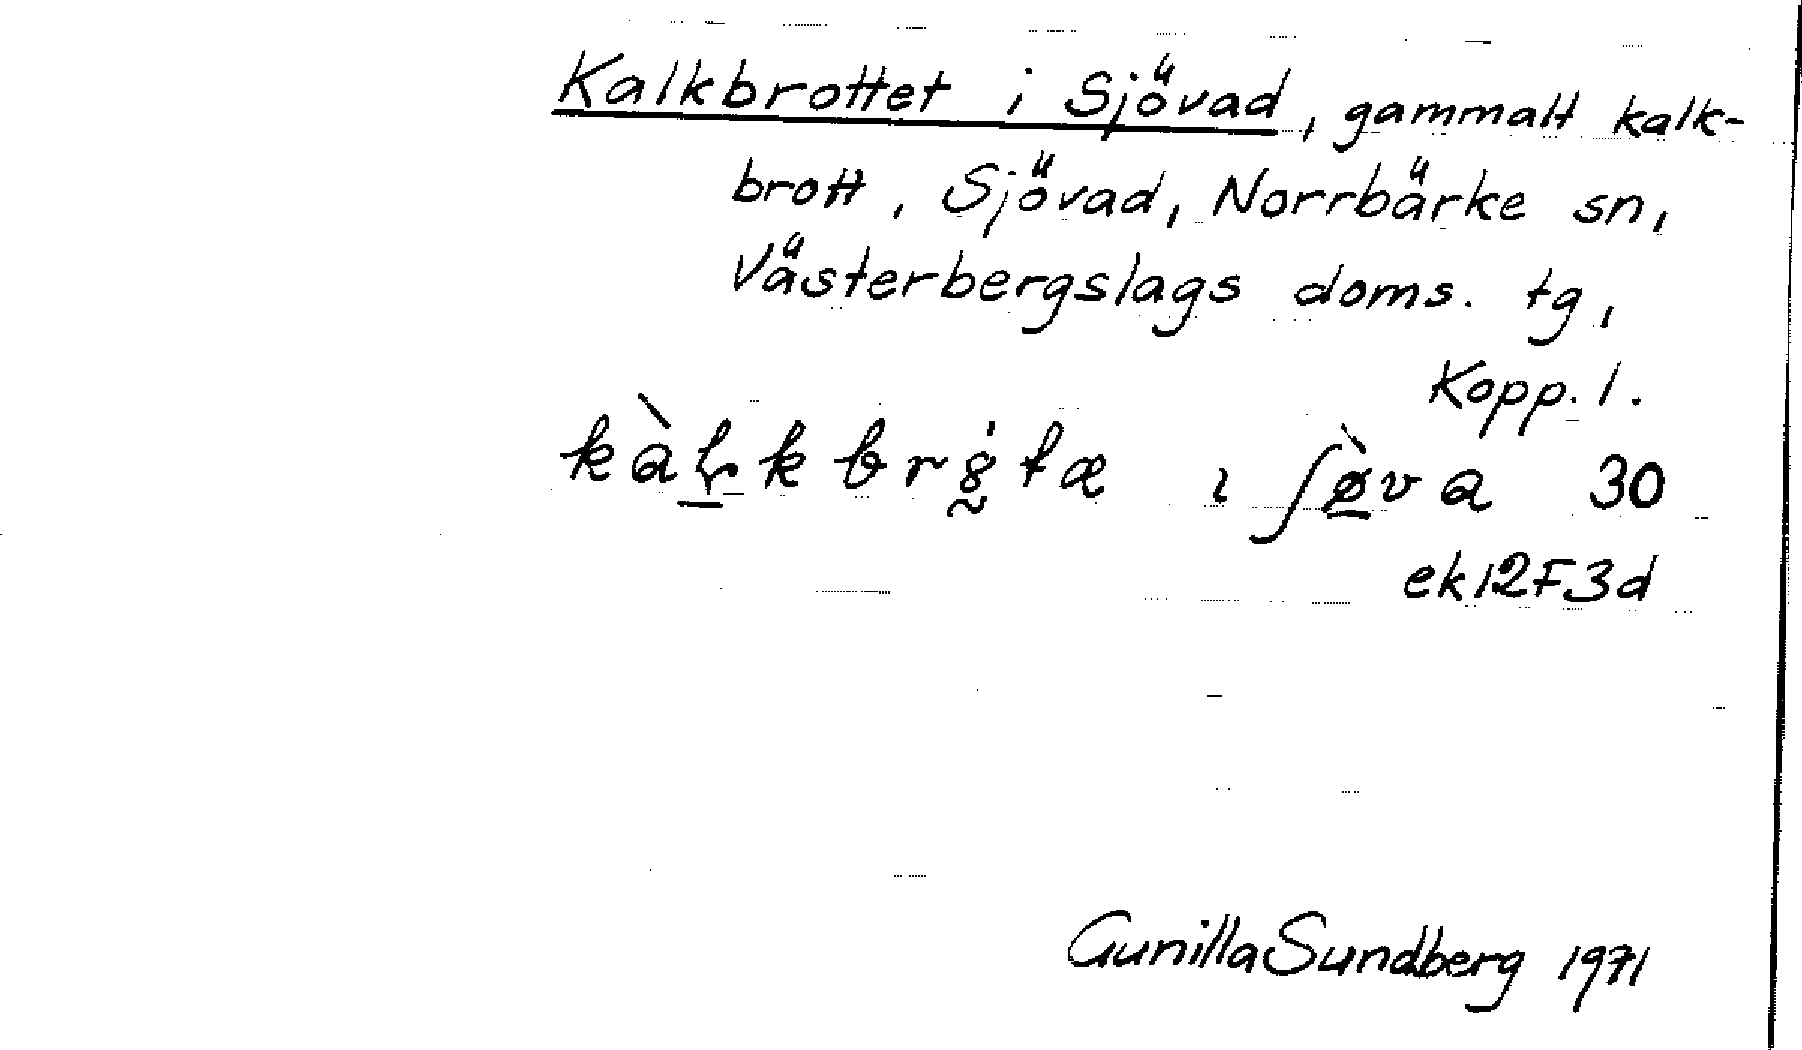 Kalkbrottet i Sjövad, gammalt kalk-
brott, Sjövad, Norrbärke sn,
Västerbergslags doms. tg,
Kopp. l.
30
ek12F3d
Gunilla Sundberg 1971